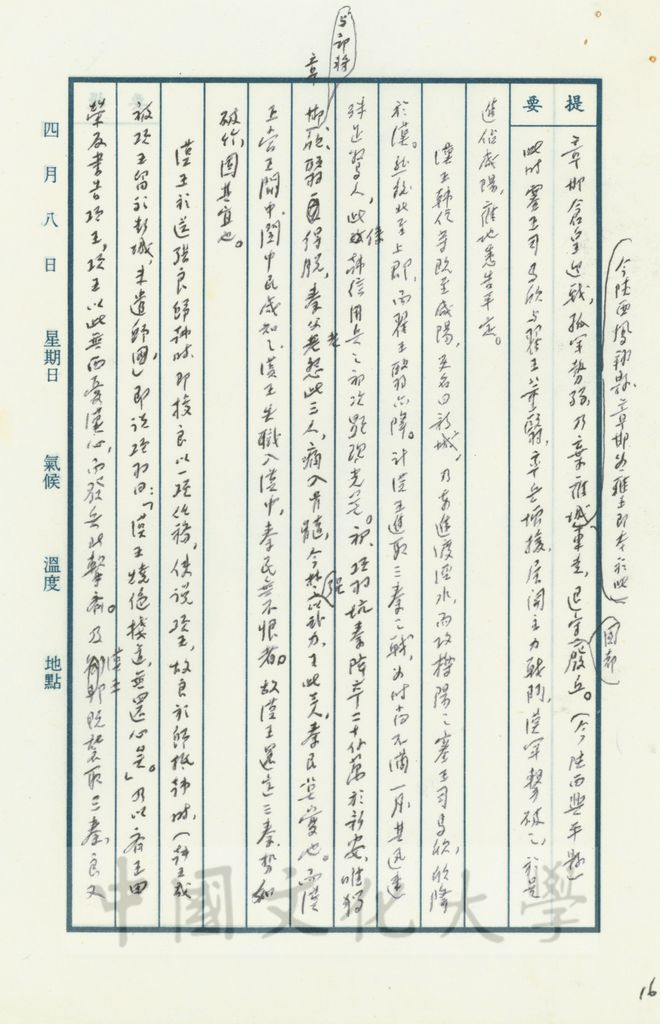 提要
章邯倉皇迎戰,孤軍勢弱,乃棄雍城東走,退守廢丘。(今陝西興平縣)
(今陝西鳳翔縣,章邯為雍王即本於此)
國都
此時塞王司馬欣與翟王董翳,率兵增援,展開主力戰鬥,漢軍擊破之,於是
進佔咸陽,雍地悉告平定。
漢王韓信等既至咸陽,更名曰新城,乃東進渡渭水,而攻櫟陽之塞王司馬欣,欣降
於漢。繼後北至上郡,而翟王董翳亦降。計漢王進取三秦之戰,為時尚不滿一月,其迅速
殊足驚人,此係韓信用兵之初次顯現光芒。初,項羽坑秦降卒二十餘萬於新安,唯獨
與部將
章邯、欣、翳得脫,秦父老怨此三人,痛入骨髓,今楚強以武力王此三人,秦民莫愛也。而漢
王當王關中,關中民咸知之,漢王失職入漢中,秦民無不恨者。故漢王還定三秦,勢如
破竹,固其宜也。
漢王於送張良歸韓時,即授良以一項任務,使說項王,故良於所抵韓時,(韓王成
被項王留於彭城,未遣歸國)即說項羽曰:「漢王燒絕棧道,無還心矣。」乃以齊王田
榮反書告項王,項王以此無西憂漢心,而發兵北擊齊。及漢王既襲取三秦,良又
四月八日 星期日 氣候 溫度 地點
中國文化大學
16